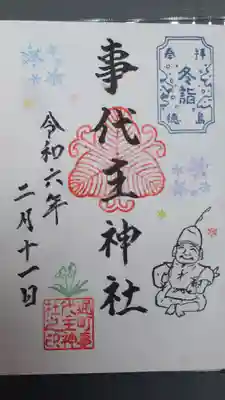 奉拝
冬詣
徳島
事代主神社
令和六年
二月十一日
通町事
代主神
社之印